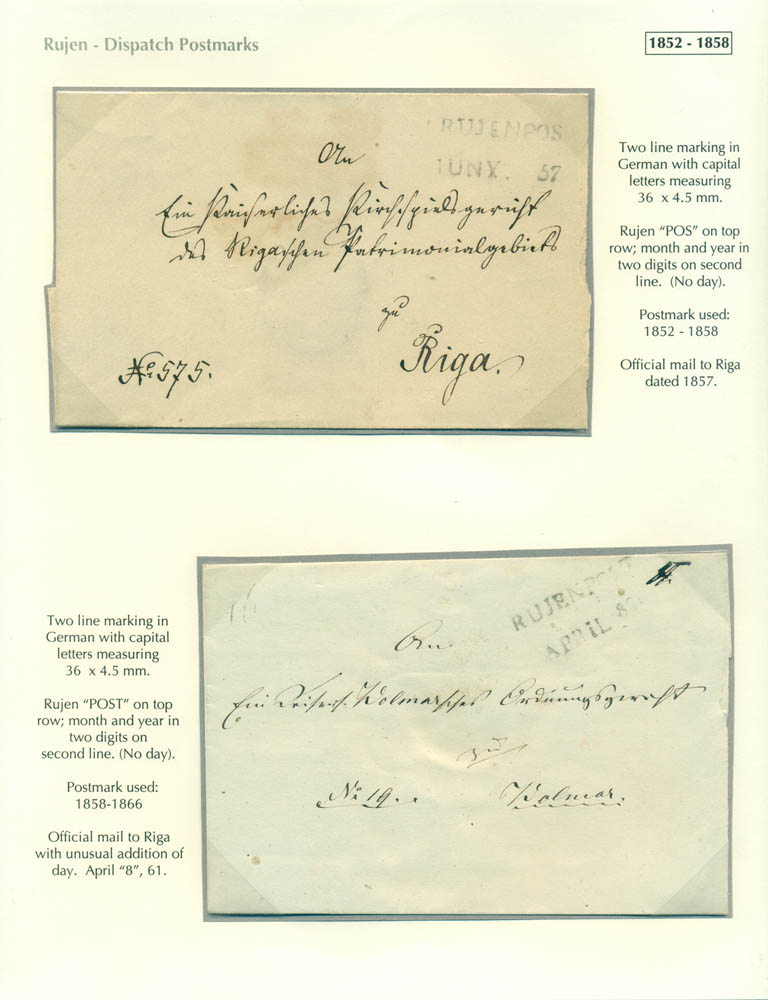 Rujen - Dispatch Postmarks
1852 - 1858
RUJENPOS
IUNY. 57
An
Ein Kaiserliches Kirchspielsgericht
des Rigaschen Patrimonialgebiets
zu
Riga.
No. 575.
Two line marking in
German with capital
letters measuring
36 x 4.5 mm.
Rujen “POS” on top
row; month and year in
two digits on second
line. (No day).
Postmark used:
1852 - 1858
Official mail to Riga
dated 1857.
Two line marking in
German with capital
letters measuring
36 x 4.5 mm.
Rujen “POST” on top
row; month and year in
two digits on
second line. (No day).
Postmark used:
1858-1866
Official mail to Riga
with unusual addition of
day. April “8”, 61.
RUJENPOST
APRIL 8
An
Ein Kaiserl. Wolmarsches Ordnungsgericht
zu
No 19.
Wolmar.